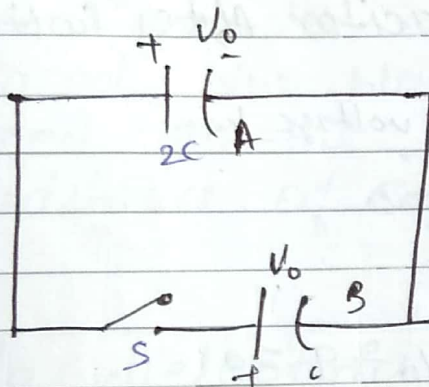 + V₀ -
2C A
V₀
B
S
+ C